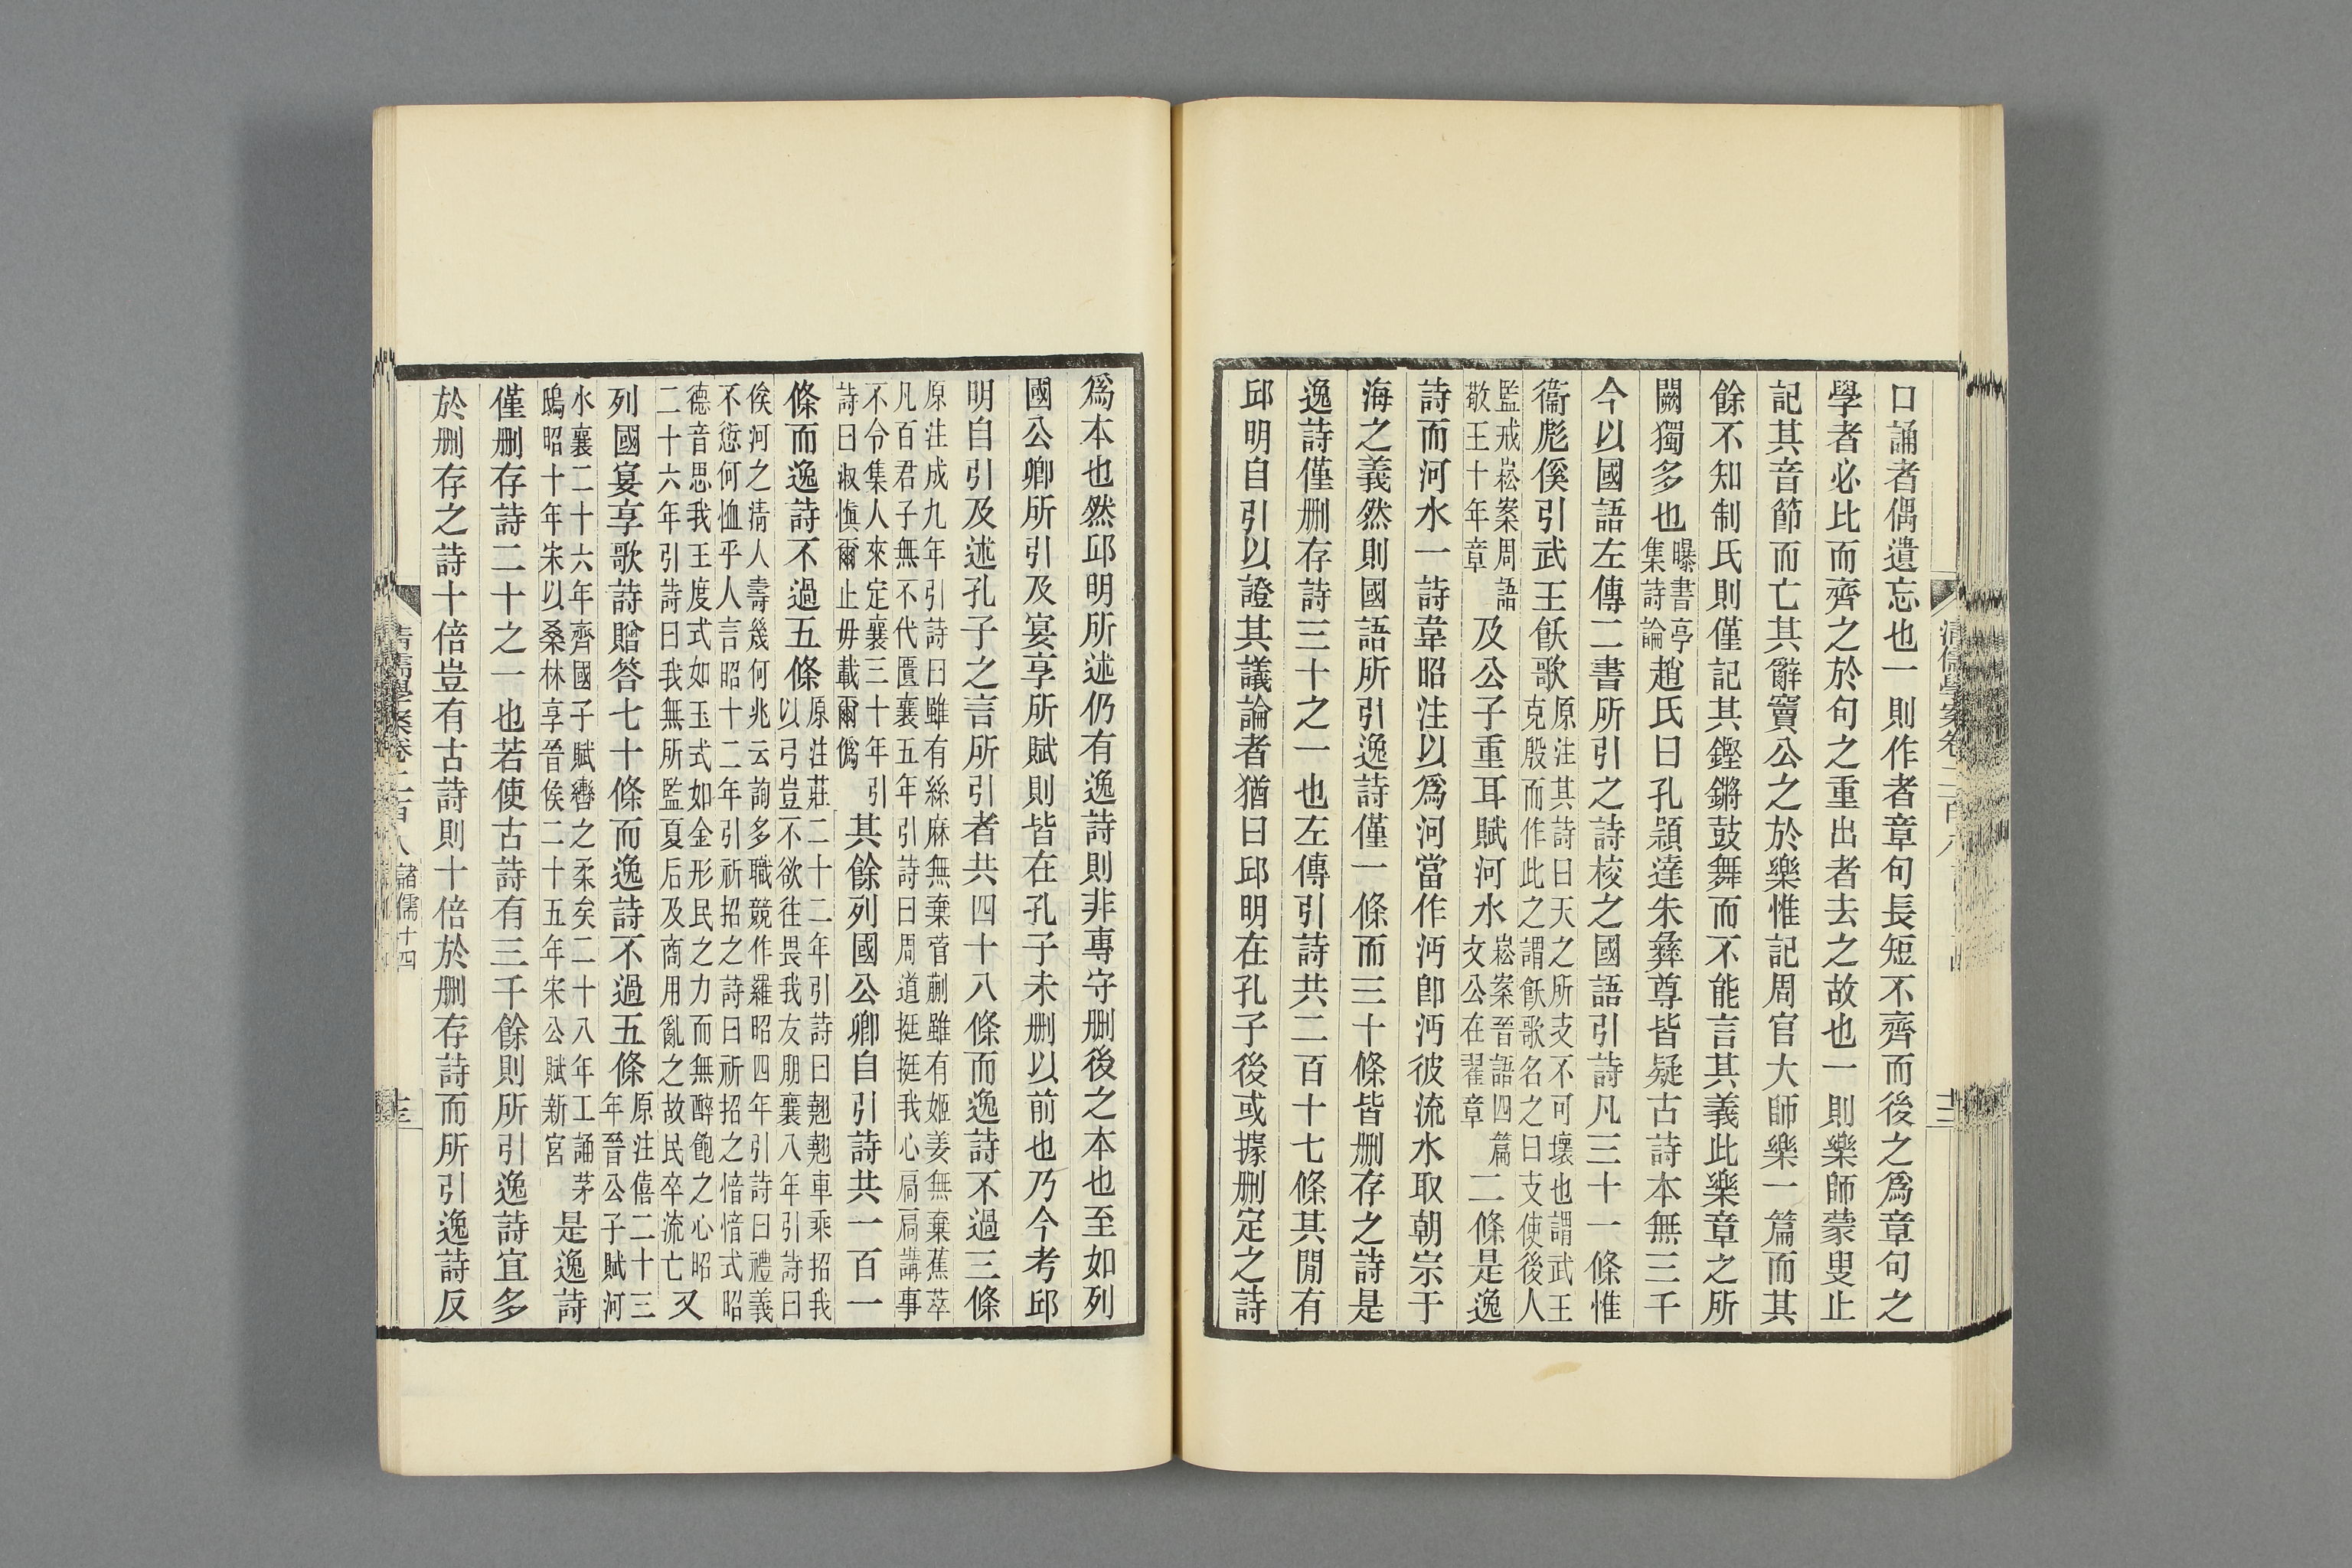 口誦者偶遺忘也一則作者章句長短不齊而後之爲章句之
學者必比而齊之於句之重出者去之故也一則樂師蒙叟止
記其音節而亡其辭竇公之於樂惟記周官大師樂一篇而其
餘不知制氏則僅記其鏗鏘鼓舞而不能言其義此樂章之所
闕獨多也
曝書亭
集詩論
趙氏曰孔穎達朱彝尊皆疑古詩本無三千
今以國語左傳二書所引之詩校之國語引詩凡三十一條惟
衞彪傒引武王飫歌
原注其詩曰天之所支不可壞也謂武王
克殷而作此之謂飫歌名之曰支使後人
監戒崧案周語
敬王十年章
及公子重耳賦河水
崧案晉語四篇
文公在翟章
二條是逸
詩而河水一詩韋昭注以爲河當作沔卽沔彼流水取朝宗于
海之義然則國語所引逸詩僅一條而三十條皆删存之詩是
逸詩僅删存詩三十之一也左傳引詩共二百十七條其閒有
邱明自引以證其議論者猶曰邱明在孔子後或據删定之詩
爲本也然邱明所述仍有逸詩則非專守删後之本也至如列
國公卿所引及宴享所賦則皆在孔子未删以前也乃今考邱
明自引及述孔子之言所引者共四十八條而逸詩不過三條
原注成九年引詩曰雖有絲麻無棄菅蒯雖有姬姜無棄蕉萃
凡百君子無不代匱襄五年引詩曰周道挺挺我心扃扃講事
不令集人來定襄三十年引
詩曰淑愼爾止毋載爾僞
其餘列國公卿自引詩共一百一
條而逸詩不過五條
原注莊二十二年引詩曰翹翹車乘招我
以弓豈不欲往畏我友朋襄八年引詩曰
俟河之淸人壽幾何兆云詢多職競作羅昭四年引詩曰禮義
不愆何恤乎人言昭十二年引祈招之詩曰祈招之愔愔式昭
德音思我王度式如玉式如金形民之力而無醉飽之心昭
二十六年引詩曰我無所監夏后及商用亂之故民卒流亡
又
列國宴享歌詩贈答七十條而逸詩不過五條
原注僖二十三
年晉公子賦河
水襄二十六年齊國子賦轡之柔矣二十八年工誦茅
鴟昭十年宋以桑林享晉侯二十五年宋公賦新宮
是逸詩
僅删存詩二十之一也若使古詩有三千餘則所引逸詩宜多
於删存之詩十倍豈有古詩則十倍於删存詩而所引逸詩反
淸儒學案卷二百八
諸儒十四